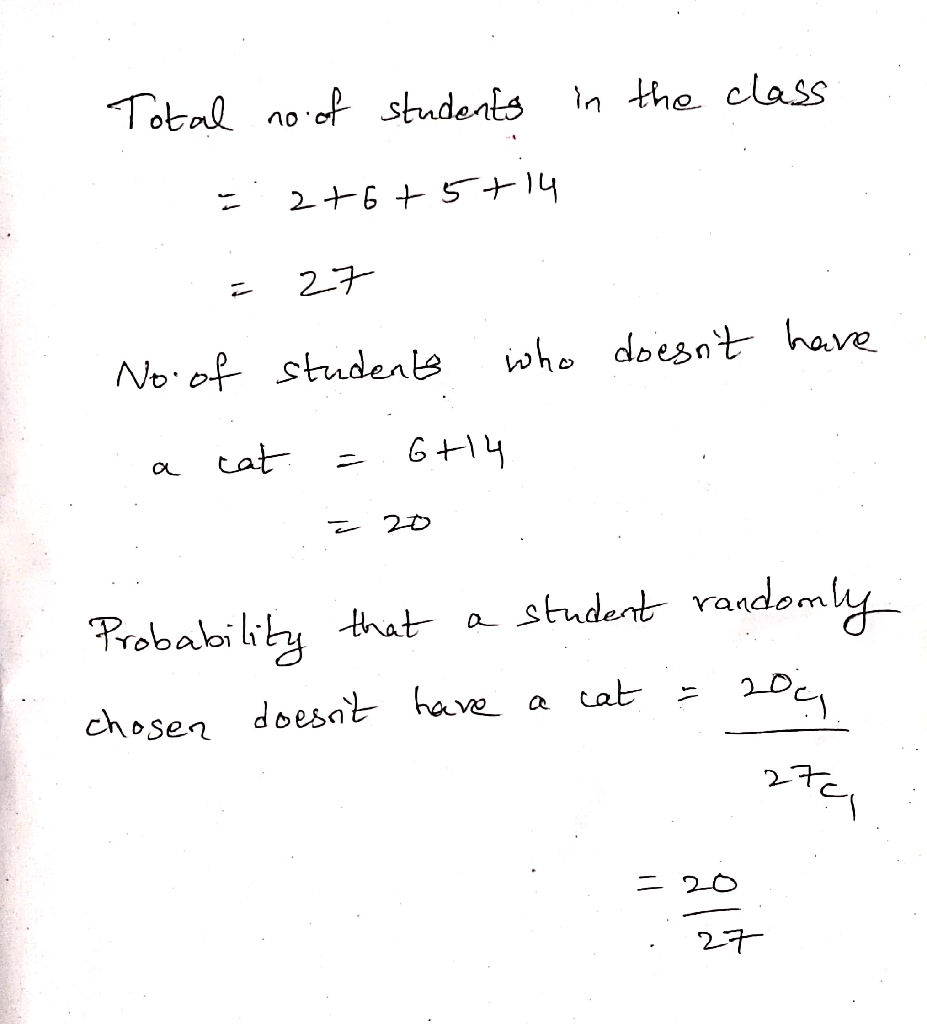 Total no.of students in the class
= 2+6+5+14
= 27
No.of students who doesn't have
a cat = 6+14
= 20
Probability that a student randomly
chosen doesn't have a cat = 20c1
27c1
= 20
27